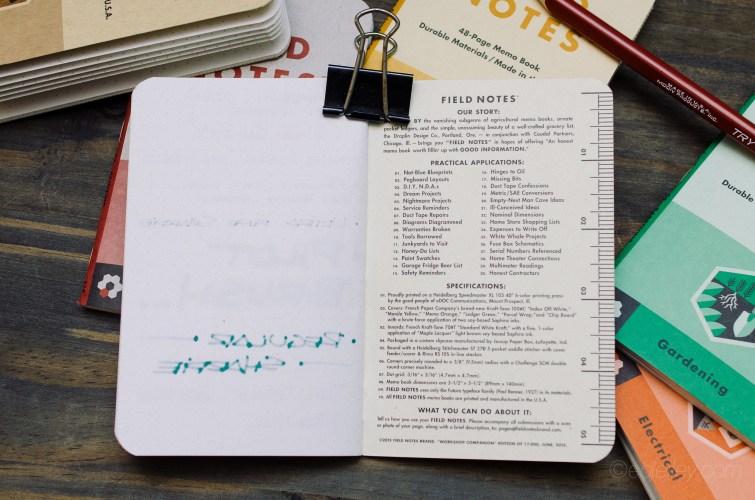 U.S.A.
NOTES
48-Page Memo Book
Durable Materials / Made in the
FIELD NOTES
OUR STORY:
BY the vanishing subgenre of agricultural memo books, ornate
pocket ledgers, and the simple, unassuming beauty of a well-crafted grocery list,
the Draplin Design Co., Portland, Ore. — in conjunction with Coudal Partners,
Chicago, Ill. — brings you "FIELD NOTES" in hopes of offering "An honest
memo book worth fillin' up with GOOD INFORMATION."
PRACTICAL APPLICATIONS:
01. Not-Blue Blueprints
02. Pegboard Layouts
03. D.I.Y. N.D.A.s
04. Dream Projects
05. Nightmare Projects
06. Service Reminders
07. Duct Tape Repairs
08. Diagrams Diagrammed
09. Warranties Broken
10. Tools Borrowed
11. Junkyards to Visit
12. Honey-Do Lists
13. Paint Swatches
14. Garage Fridge Beer List
15. Safety Reminders
16. Hinges to Oil
17. Missing Bits
18. Duct Tape Confessions
19. Metric/SAE Conversions
20. Empty-Nest Man Cave Ideas
21. Ill-Conceived Ideas
22. Nominal Dimensions
23. Home Store Shopping Lists
24. Expenses to Write Off
25. White Whale Projects
26. Fuse Box Schematics
27. Serial Numbers Referenced
28. Home Theater Connections
29. Multimeter Readings
30. Honest Contractors
SPECIFICATIONS:
01. Proudly printed on a Heidelberg Speedmaster XL 105 40" 6-color printing press
by the good people of eDOC Communications, Mount Prospect, Ill.
02. Covers: French Paper Company's brand-new Kraft-Tone 100#C "Index Off White,"
"Manila Yellow," "Memo Orange," "Ledger Green," "Parcel Wrap," and "Chip Board"
with a brute-force application of two soy-based Saphira inks.
03. Innards: French Kraft-Tone 70#T "Standard White Kraft," with a fine, 1-color
application of "Maple Lacquer" light brown soy-based Saphira ink.
04. Packaged in a custom rigamarole manufactured by Jessup Paper Box, Lafayette, Ind.
05. Bound with a Heidelberg Stitchmaster ST 270 5-pocket saddle stitcher with cover
feeder/scorer & Rima RS 10S in-line stacker.
06. Corners precisely rounded to a 3/8" (9.5mm) radius with a Challenge SCM double
round corner machine.
07. Dot grid: 3/16" x 3/16" (4.7mm x 4.7mm).
08. Memo book dimensions are 3-1/2" x 5-1/2" (89mm x 140mm).
09. FIELD NOTES uses only the Futura typeface family (Paul Renner, 1927) in its materials.
10. All FIELD NOTES memo books are printed and manufactured in the U.S.A.
WHAT YOU CAN DO ABOUT IT:
Tell us how you use your FIELD NOTES. Please accompany all submissions with a scan
or photo of your page, along with a brief description, to: pages@fieldnotesbrand.com.
©2015 FIELD NOTES BRAND. "WORKSHOP COMPANION" EDITION OF 17-000, JUNE, 2015.
01
02
03
04
05
REGULAR
MOON PRODUCTS, INC.
TRY
Durable
Gardening
Electrical